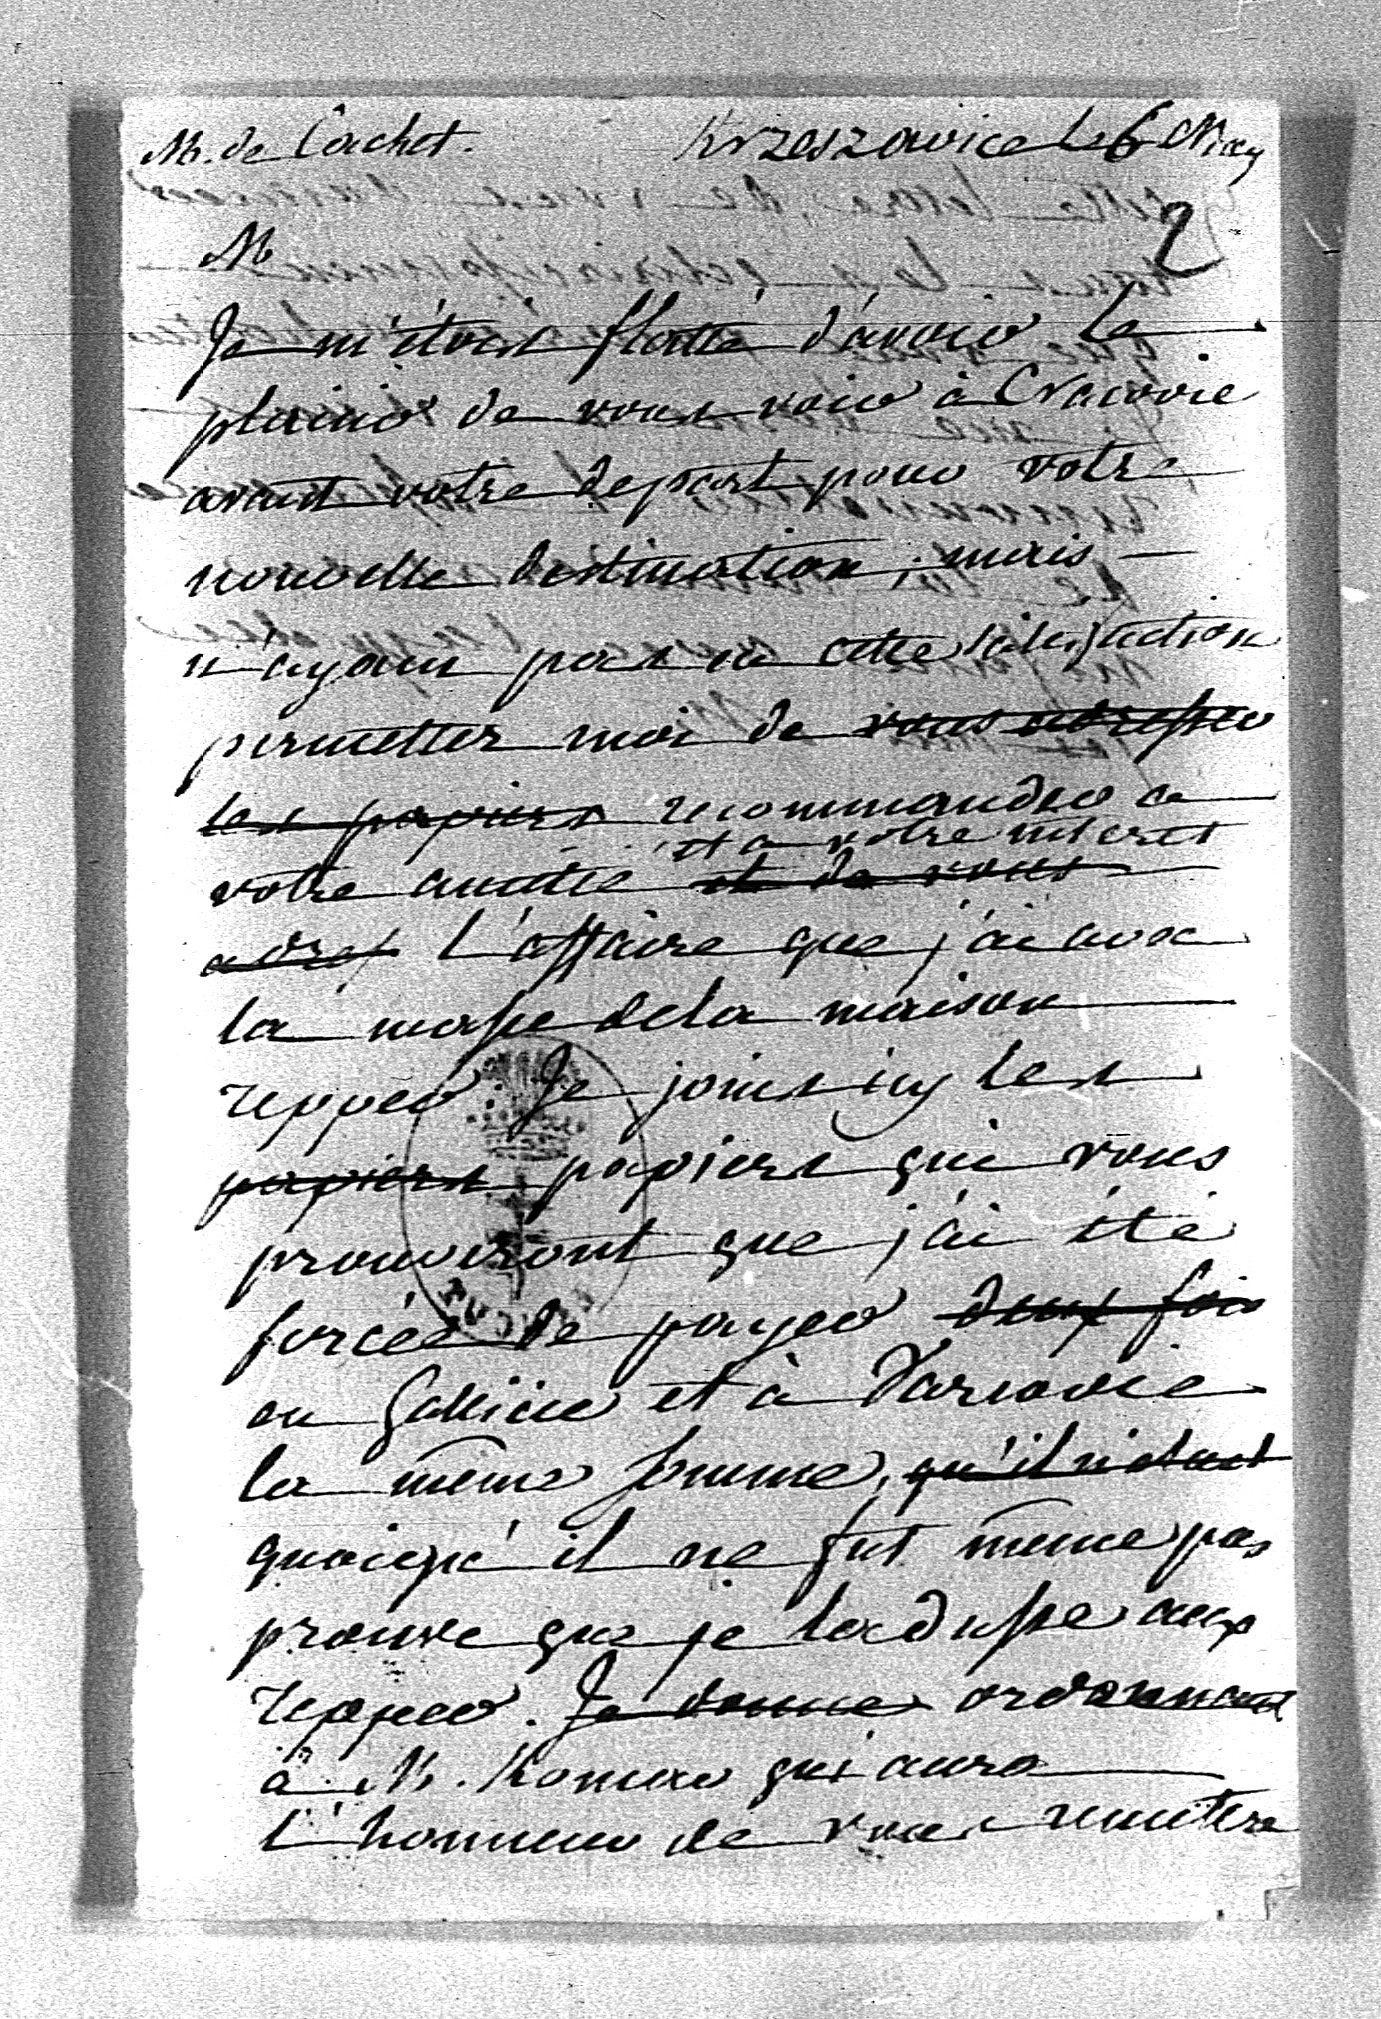 M. de Cachet. Krzeszovice le 6 May
2
M
Je m'étois flatté d'avoir le
plaisir de vous voir à Cracovie
avant votre depart pour votre
nouvelle destination, mais
n'ayant pas eu cette satisfaction
permetter moi de vous adresser
les papiers recommander a
et a votre interet
votre amitié et de vous
adres l'affaire que j'ai avec
la masse dela maison
Tepper. Je joins icy les
papiers papiers qui vous
prouveront que j'ai été
forcée de payer deux fois
en Gallicie et à Varsovie
la même somme, qu'il n'etoit
quoiqu'il ne fut meme pas
prouvé que je la dusse aux
Tepper. Je donne ordonnant
à M. Koman qui aura
l'honneur de vous remettre